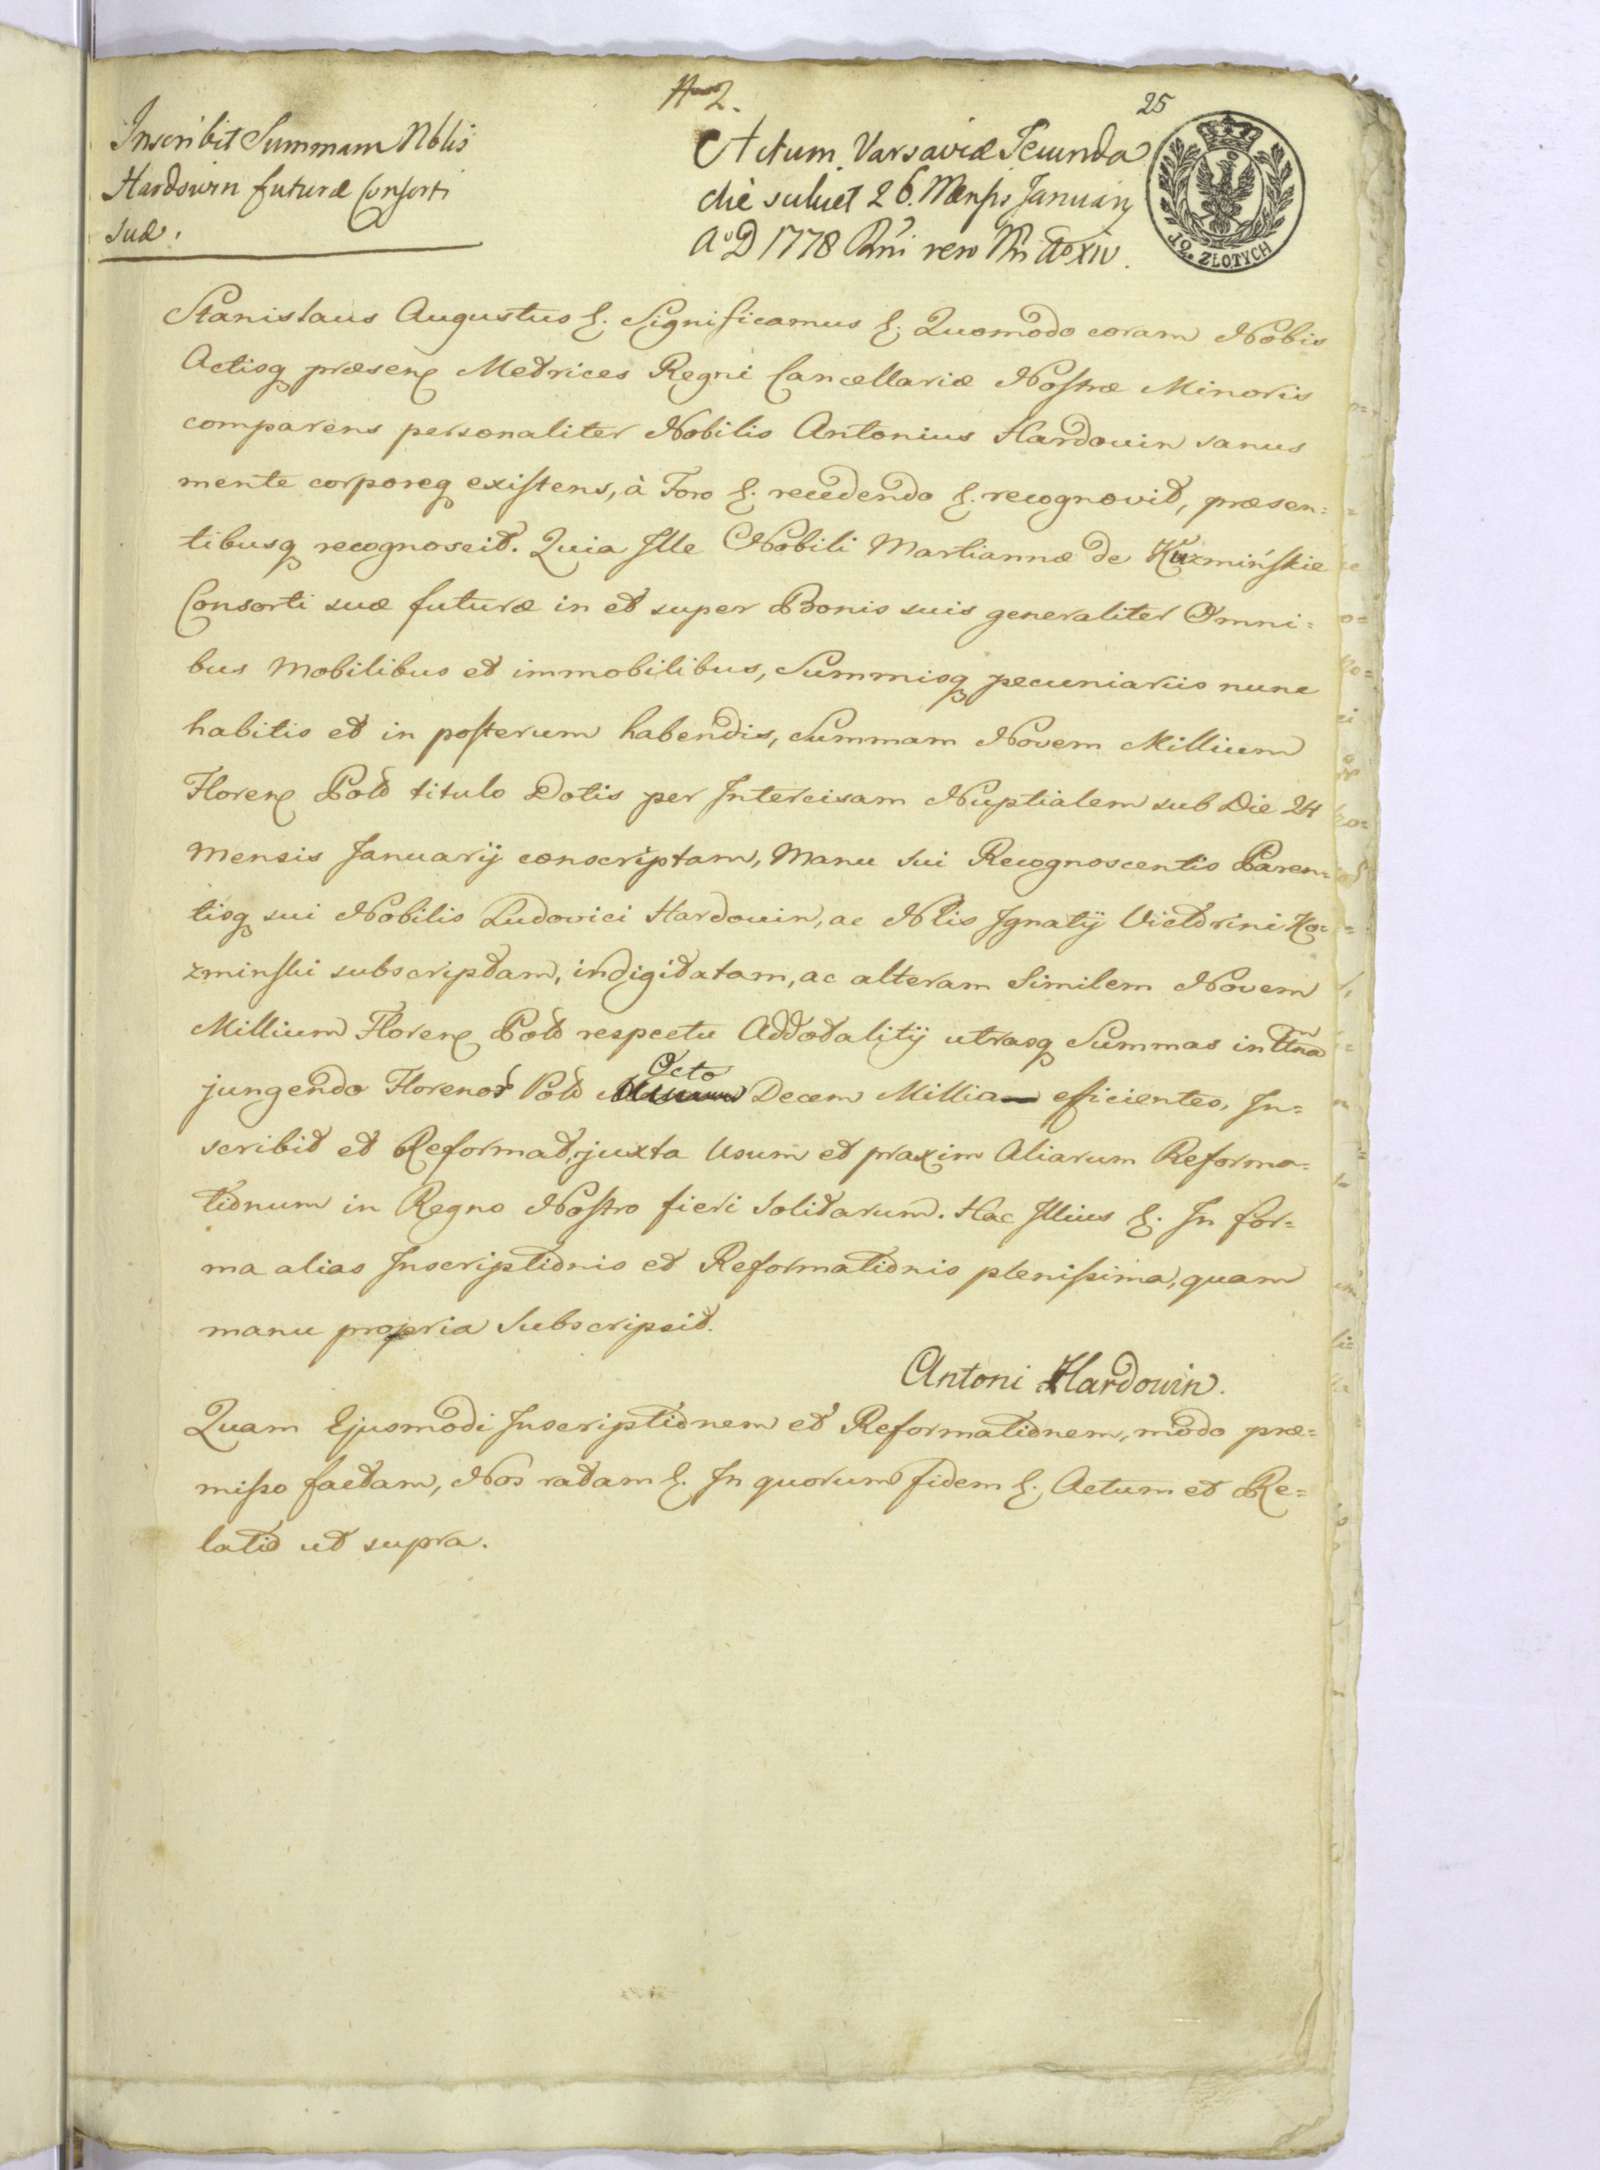 N 2.
25
Inscribit Summam Nblis
Hardowin futuræ Consorti
suæ.
Actum Varsaviæ Secunda
die sciliet 26. Mensis Januarij
A° D 1778 Rni vero Nri A° XIV.
12. ZŁOTYCH
Stanislaus Augustus &. Significamus &. Quomodo coram Nobis
Actisq præsen Metrices Regni Cancellariæ Nostræ Minoris
comparens personaliter Nobilis Antonius Hardouin sanus
mente corporeq existens, à Foro &. recedendo &. recognovit, præsen=
tibusq recognoscit. Quia Ille Nobili Martiannæ de Kuzmińskie
Consorti suæ futuræ in et super Bonis suis generaliter Omni=
bus Mobilibus et immobilibus, Summisq pecuniariis nunc
habitis et in posterum habendis, Summam Novem Millium
Floren Pold titulo Dotis per Intercisam Nuptialem sub Die 24
Mensis Januarij conscriptam, Manu sui Recognoscentis Paren=
tisq sui Nobilis Ludovici Hardouin, ac Nlis Ignatij Victorini Ko=
zminski subscriptam, indigitatam, ac alteram Similem Novem
Millium Floren Pold respectu Addotalitij utrasq Summas in Unam
jungendo Florenos Pold Octo Decem Millia eficientes, In=
scribit et Reformat, juxta Usum et praxim Aliarum Reforma=
tionum in Regno Nostro fieri Solitarum. Hac Illius &. In for=
ma alias Inscriptionis et Reformationis plenissima, quam
manu propria Subscripsit.
Antoni Hardouin.
Quam Ejusmodi Inscriptionem et Reformationem, modo præ=
misso factam, Nos ratam &. In quorum fidem &. Actum et Re=
latio ut supra.